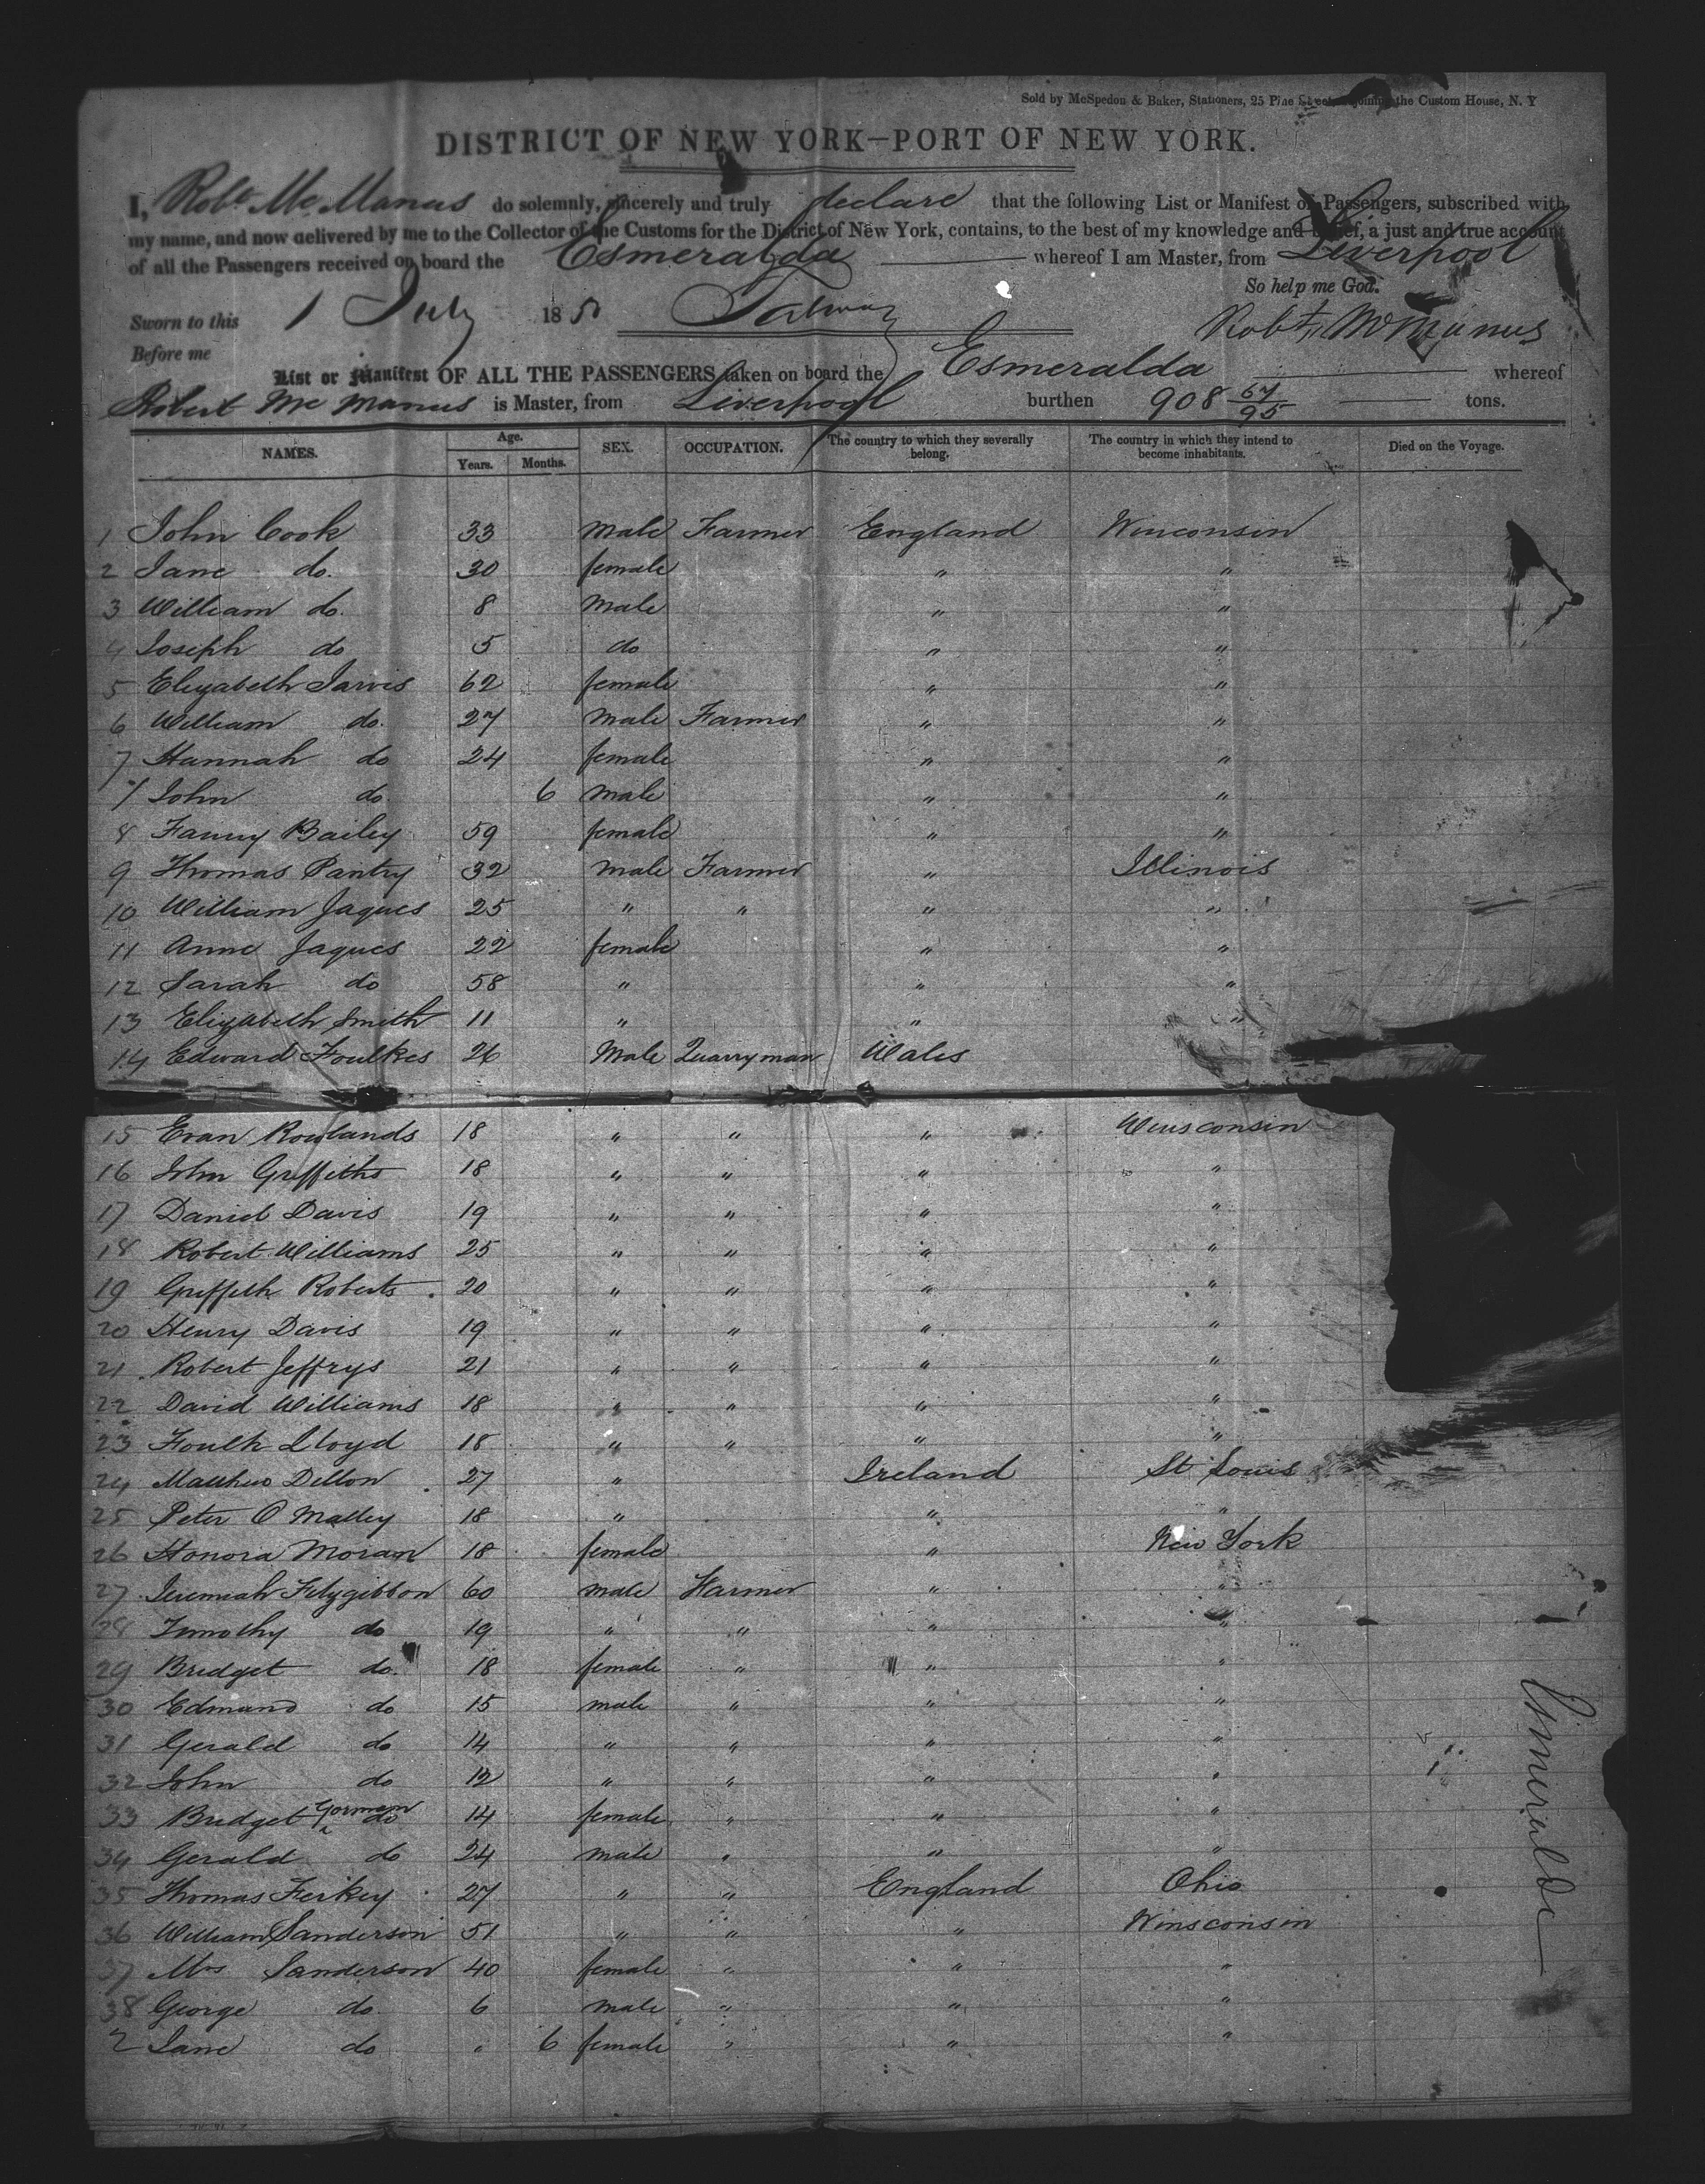 Sold by McSpedon & Baker, Stationers, 25 Pine Street, adjoining the Custom House, N. Y
DISTRICT OF NEW YORK—PORT OF NEW YORK.
I, Robt. McManus do solemnly, sincerely and truly declare that the following List or Manifest of Passengers, subscribed with
my name, and now delivered by me to the Collector of the Customs for the District of New York, contains, to the best of my knowledge and belief, a just and true account
of all the Passengers received on board the Esmeralda whereof I am Master, from Liverpool
So help me God.
Sworn to this 1 July 185
Robt. McManus
Before me
List or Manifest OF ALL THE PASSENGERS taken on board the Esmeralda whereof
Robert McManus is Master, from Liverpool burthen 908 67/95 tons.
NAMES. Age. Years. Months. SEX. OCCUPATION. The country to which they severally belong. The country in which they intend to become inhabitants. Died on the Voyage.
1 John Cook 33 male Farmer England Winconsin
2 Jane do. 30 female " "
3 William do. 8 male " "
4 Joseph do 5 do " "
5 Elizabeth Jarvis 62 female " "
6 William do. 27 male Farmer " "
7 Hannah do 24 female " "
1 John do 6 male " "
8 Fanny Bailey 59 female " "
9 Thomas Pantry 32 male Farmer " Illinois
10 William Jaques 25 " " " "
11 Anne Jaques 22 female " "
12 Sarah do 58 " " "
13 Elizabeth Smith 11 " " "
14 Edward Foulkes 26 Male Quarryman Wales
15 Evan Rowlands 18 " " " Winsconsin
16 John Griffiths 18 " " " "
17 Daniel Davis 19 " " " "
18 Robert Williams 25 " " " "
19 Griffith Roberts 20 " " " "
20 Henry Davis 19 " " " "
21 Robert Jeffrys 21 " " " "
22 David Williams 18 " " " "
23 Foulk Lloyd 18 " " " "
24 Matthew Dillon 27 " Ireland St Louis
25 Peter O Malley 18 " " "
26 Honora Moran 18 female " New York
27 Jeremiah Fitzgibbon 60 male Farmer " "
28 Timothy do 19 " " " "
29 Bridget do. 18 female " " "
30 Edmund do 15 male " " "
31 Gerald do 14 " " " "
32 John do 12 " " " "
33 Bridget Gorman do 14 female " " "
34 Gerald do 24 male " " "
35 Thomas Ferkey 27 " " England Ohio
36 William Sanderson 51 " " " Winsconsin
37 Mrs Sanderson 40 female " " "
38 George do. 6 male " " "
2 Jane do " 6 female " " "
Esmeralda